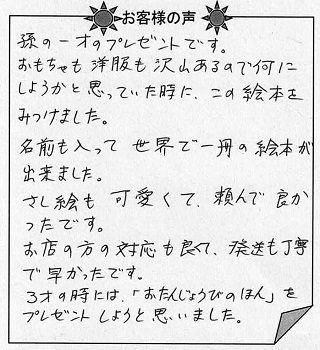 お客様の声
孫の一才のプレゼントです。
おもちゃも洋服も沢山あるので何に
しようかと思っていた時に、この絵本を
みつけました。
名前も入って世界で一冊の絵本が
出来ました。
さし絵も可愛くて、頼んで良か
ったです。
お店の方の対応も良くて、発送も丁寧
で早かったです。
3才の時には、「おたんじょうびのほん」を
プレゼントしようと思いました。